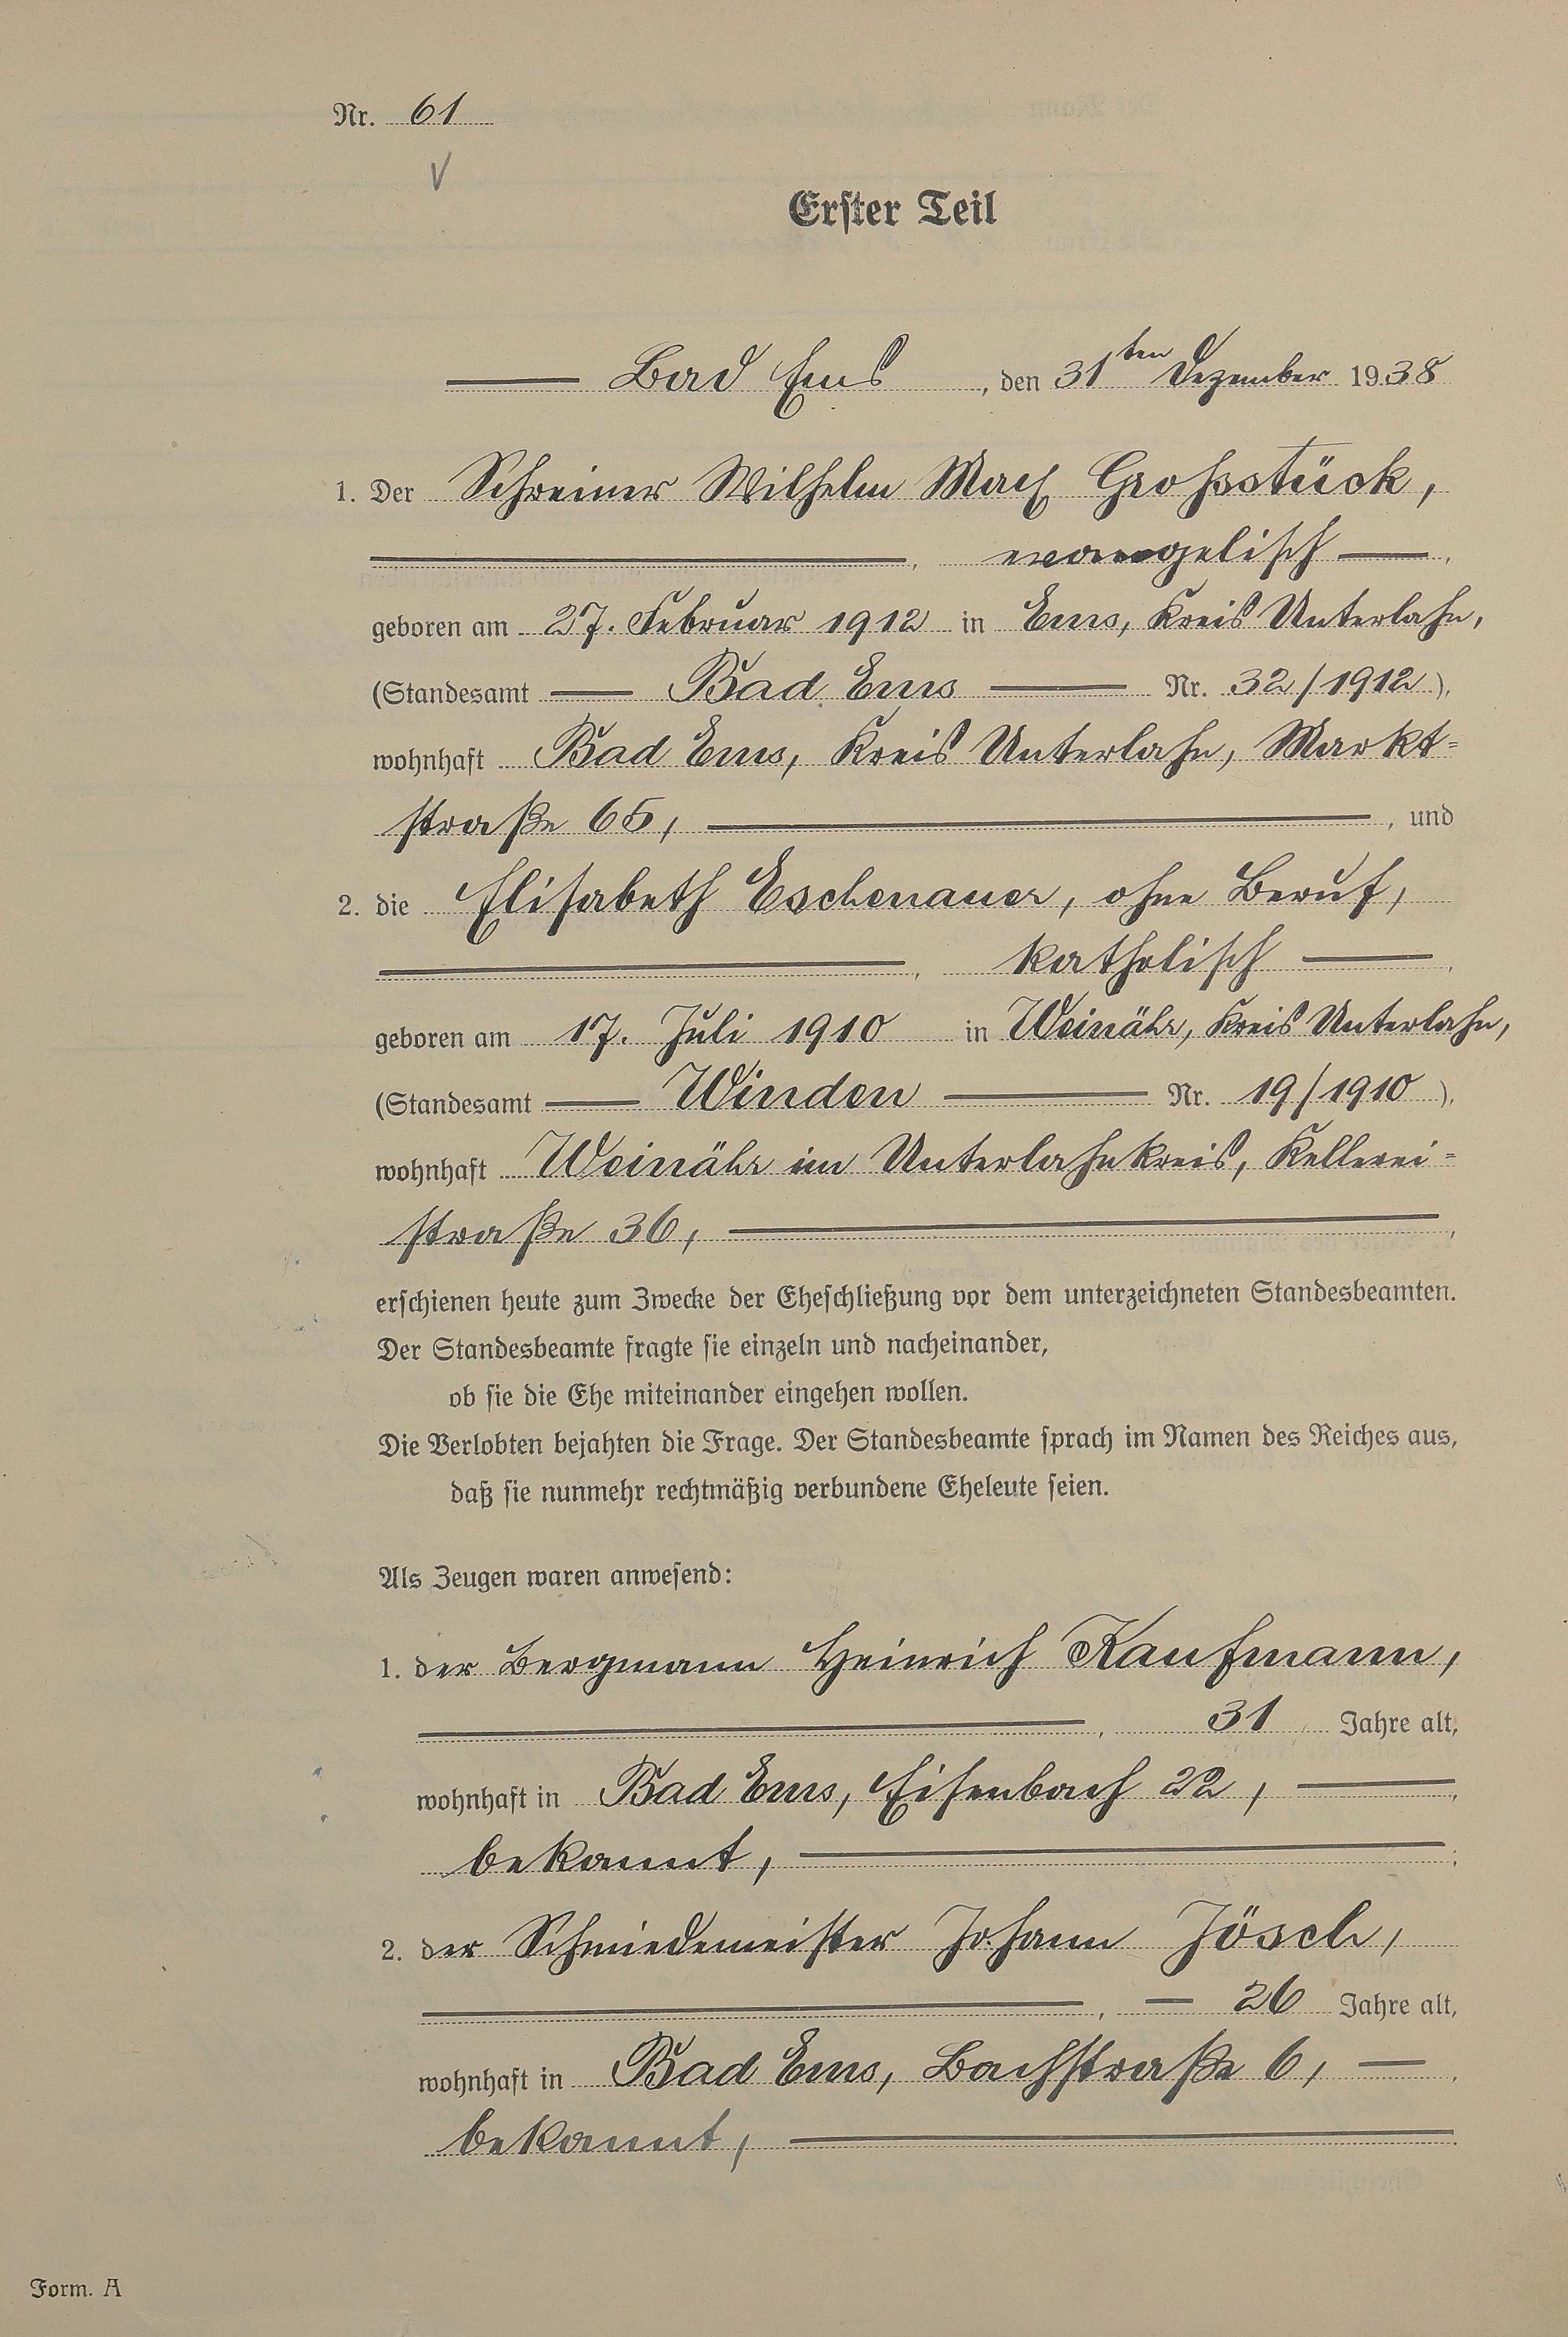 Nr. 61
Erster Teil
Bad Ems, den 31ten Dezember 1938
1. Der Schreiner Wilhelm Max Großstück,
, evangelisch,
geboren am 27. Februar 1912 in Ems, Kreis Unterlahn,
(Standesamt Bad Ems Nr. 32/1912),
wohnhaft Bad Ems, Kreis Unterlahn, Markt=
straße 65, , und
2. die Elisabeth Eschenauer, ohne Beruf,
, katholisch,
geboren am 17. Juli 1910 in Weinähr, Kreis Unterlahn,
(Standesamt Winden Nr. 19/1910),
wohnhaft Weinähr im Unterlahnkreis, Kellerei=
straße 36, ,
erschienen heute zum Zwecke der Eheschließung vor dem unterzeichneten Standesbeamten.
Der Standesbeamte fragte sie einzeln und nacheinander,
ob sie die Ehe miteinander eingehen wollen.
Die Verlobten bejahten die Frage. Der Standesbeamte sprach im Namen des Reiches aus,
daß sie nunmehr rechtmäßig verbundene Eheleute seien.
Als Zeugen waren anwesend:
1. der Bergmann Heinrich Kaufmann,
, 31 Jahre alt,
wohnhaft in Bad Ems, Eisenbach 22, ,
bekannt, ;
2. der Schmiedemeister Johann Jösch,
, — 26 Jahre alt,
wohnhaft in Bad Ems, Bachstraße 6, — ,
bekannt, .
Form. A